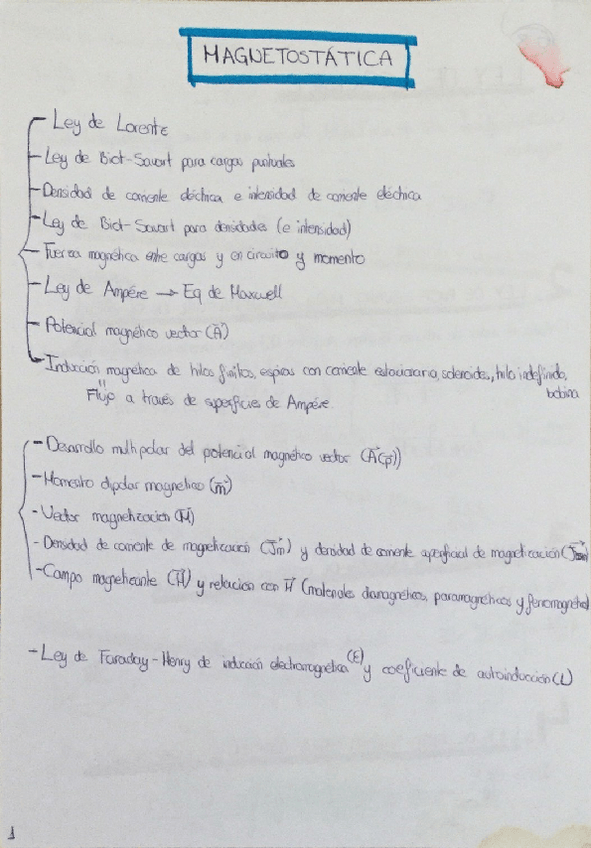 MAGNETOSTÁTICA
- Ley de Lorentz
- Ley de Biot-Savart para cargas puntuales
- Densidad de corriente eléctrica e intensidad de corriente eléctrica
- Ley de Biot-Savart para densidades (e intensidad)
- Fuerza magnética entre cargas y en circuito y momento
- Ley de Ampére → Eq de Maxwell
- Potencial magnético vector (A⃗)
- Inducción magnética de hilos finitos, espiras con corriente estacionaria, solenoides, hilo indefinido,
bobina
" Flujo a través de superficies de Ampére
- Desarrollo multipolar del potencial magnético vector (A⃗(p⃗))
- Momento dipolar magnético (m⃗)
- Vector magnetización (M⃗)
- Densidad de corriente de magnetización (J⃗m) y densidad de corriente superficial de magnetización
- Campo magnetizante (H⃗) y relación con M⃗ (materiales diamagnéticos, paramagnéticos y ferromagnéticos)
- Ley de Faraday-Henry de inducción electromagnética (E) y coeficiente de autoinducción (L)
1